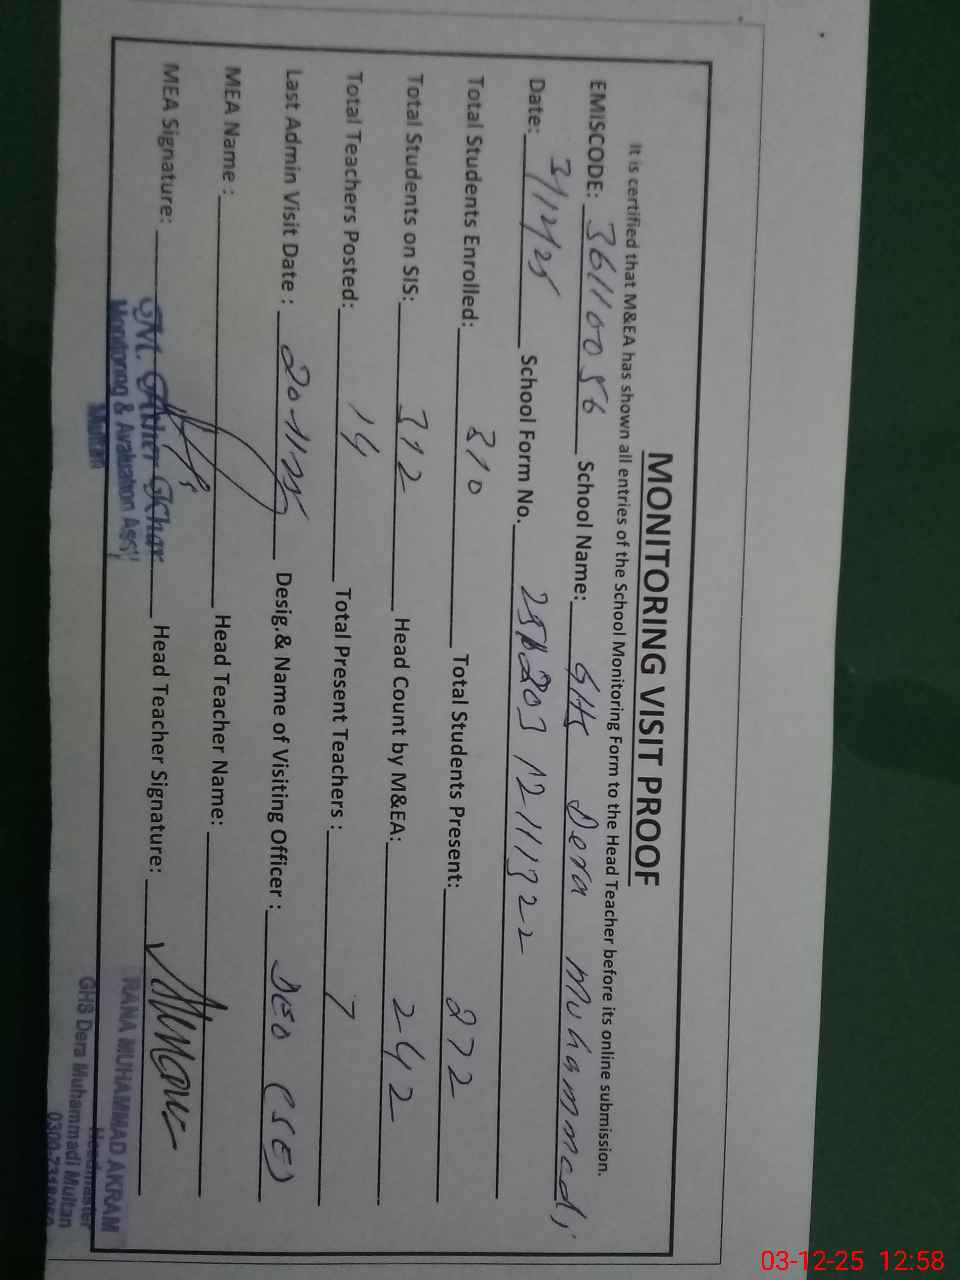 MONITORING VISIT PROOF
It is certified that M&EA has shown all entries of the School Monitoring Form to the Head Teacher before its online submission.
EMISCODE: 36110056 School Name: GHS Dera Muhammadi
Date: 3/12/25 School Form No. 1211322
Total Students Enrolled: 310 Total Students Present: 272
Total Students on SIS: 312 Head Count by M&EA: 242
Total Teachers Posted: 14 Total Present Teachers : 7
Last Admin Visit Date : 20-11-25 Desig.& Name of Visiting Officer : DEO (SE)
MEA Name : Head Teacher Name:
MEA Signature: Head Teacher Signature:
Monitoring & Avaluation Asst
Multan
RANA MUHAMMAD AKRAM
Headmaster
GHS Dera Muhammadi Multan
03-12-25 12:58